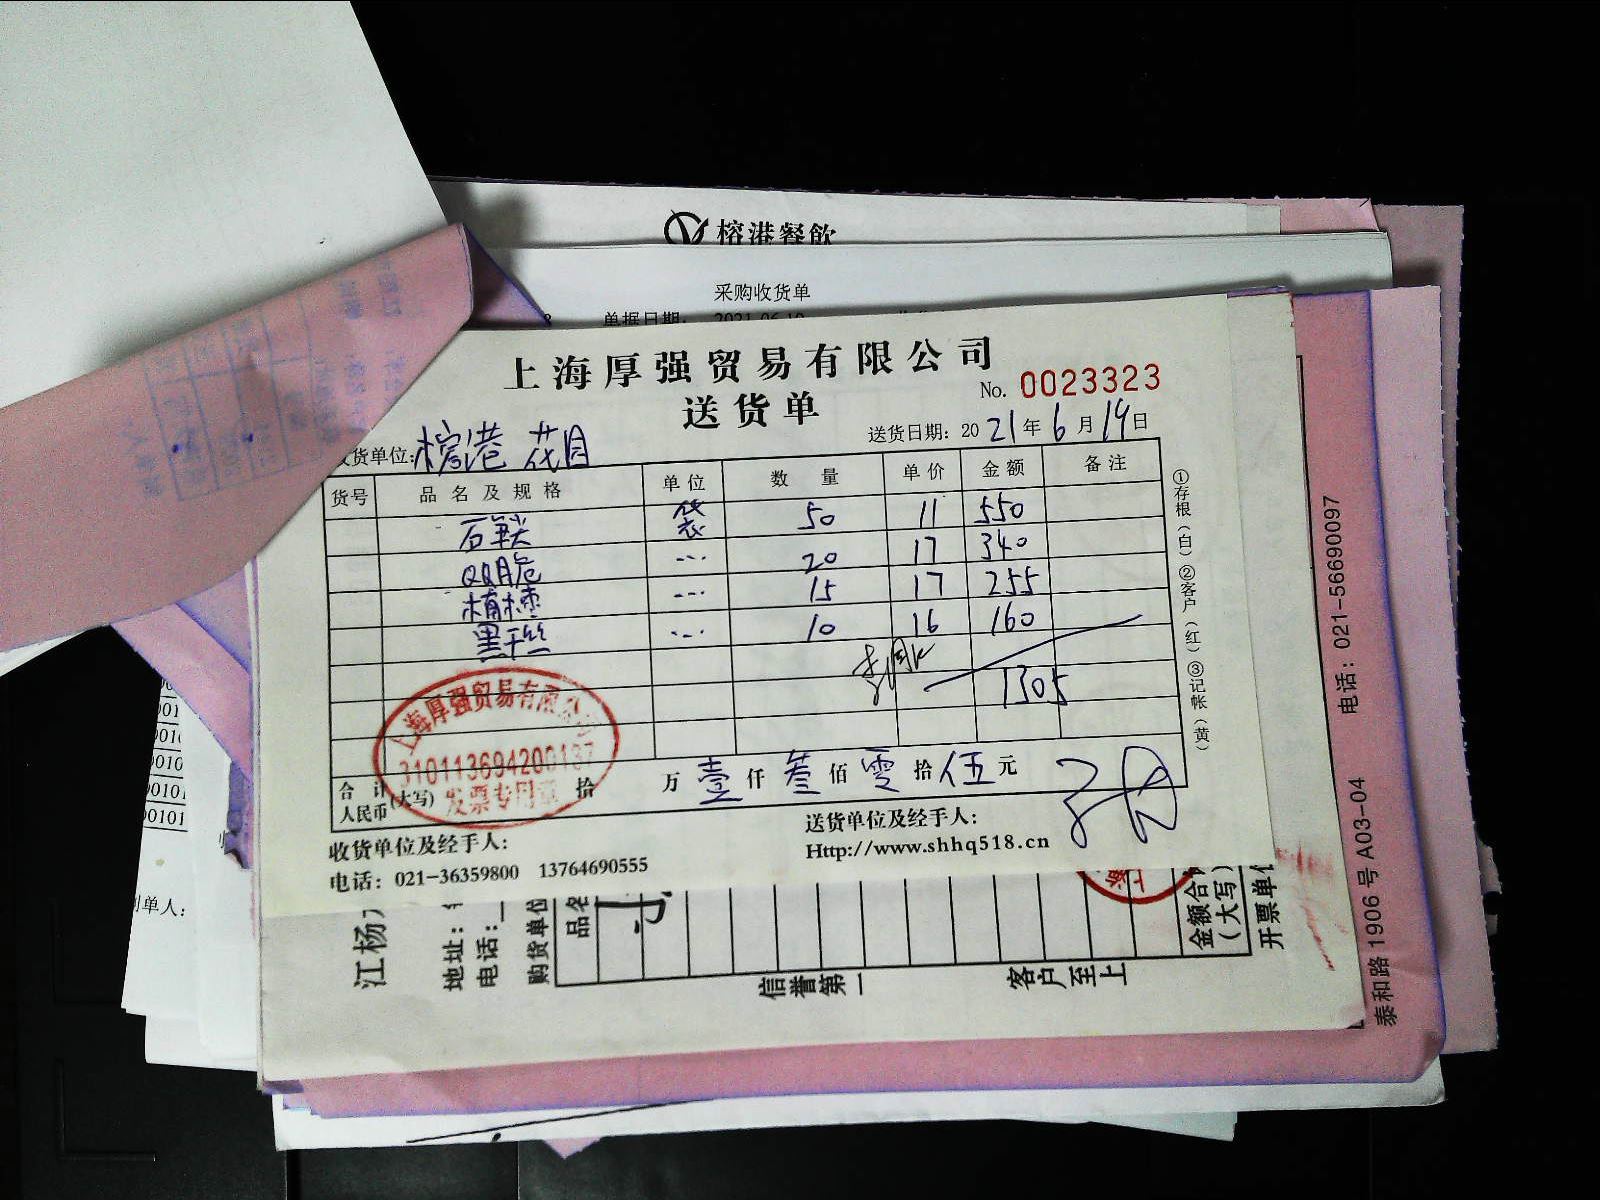 榕港餐飲
采购收货单
单据日期: 2021-06-19
上海厚强贸易有限公司
No. 0023323
送货单
送货日期: 2021年6月19日
收货单位: 榕港 花园
货号 品名及规格 单位 数量 单价 金额 备注
袋 50 11 550
QQ脆 --- 20 17 340
--- 15 17 255
黑千丝 --- 10 16 160
1305
上海厚强贸易有限公司
310113694200137
发票专用章
合计人民币(大写) 拾 万 壹 仟 叁 佰 零 拾 伍 元
收货单位及经手人:
送货单位及经手人:
电话: 021-36359800 13764690555
Http://www.shhq518.cn
①存根(白)②客户(红)③记帐(黄)
江杨
地址:
电话:
购货单位
品名
信誉第一
客户至上
金额合
(大写)
开票单位
泰和路1906号A03-04 电话: 021-56690097
制单人: